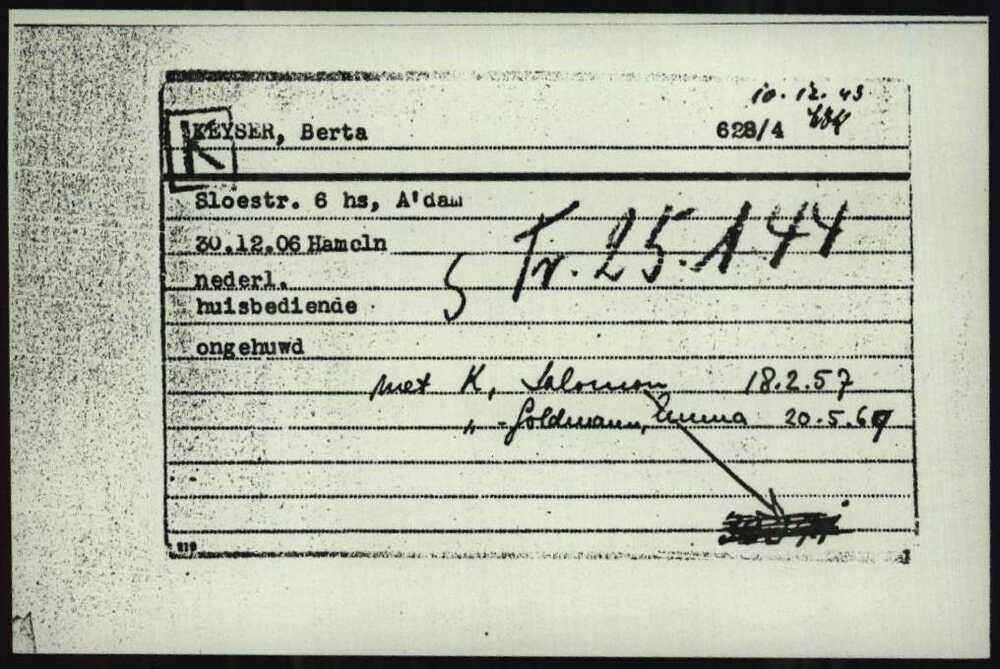 10.12.43
K KEYSER, Berta 628/4
Sloestr. 6 hs, A'dam
30.12.06 Hameln
nederl.
huisbediende
5 Tr. 25.1.44
ongehuwd
met K, Salomon 18.2.57
" - Goldmann, Emma 20.5.67